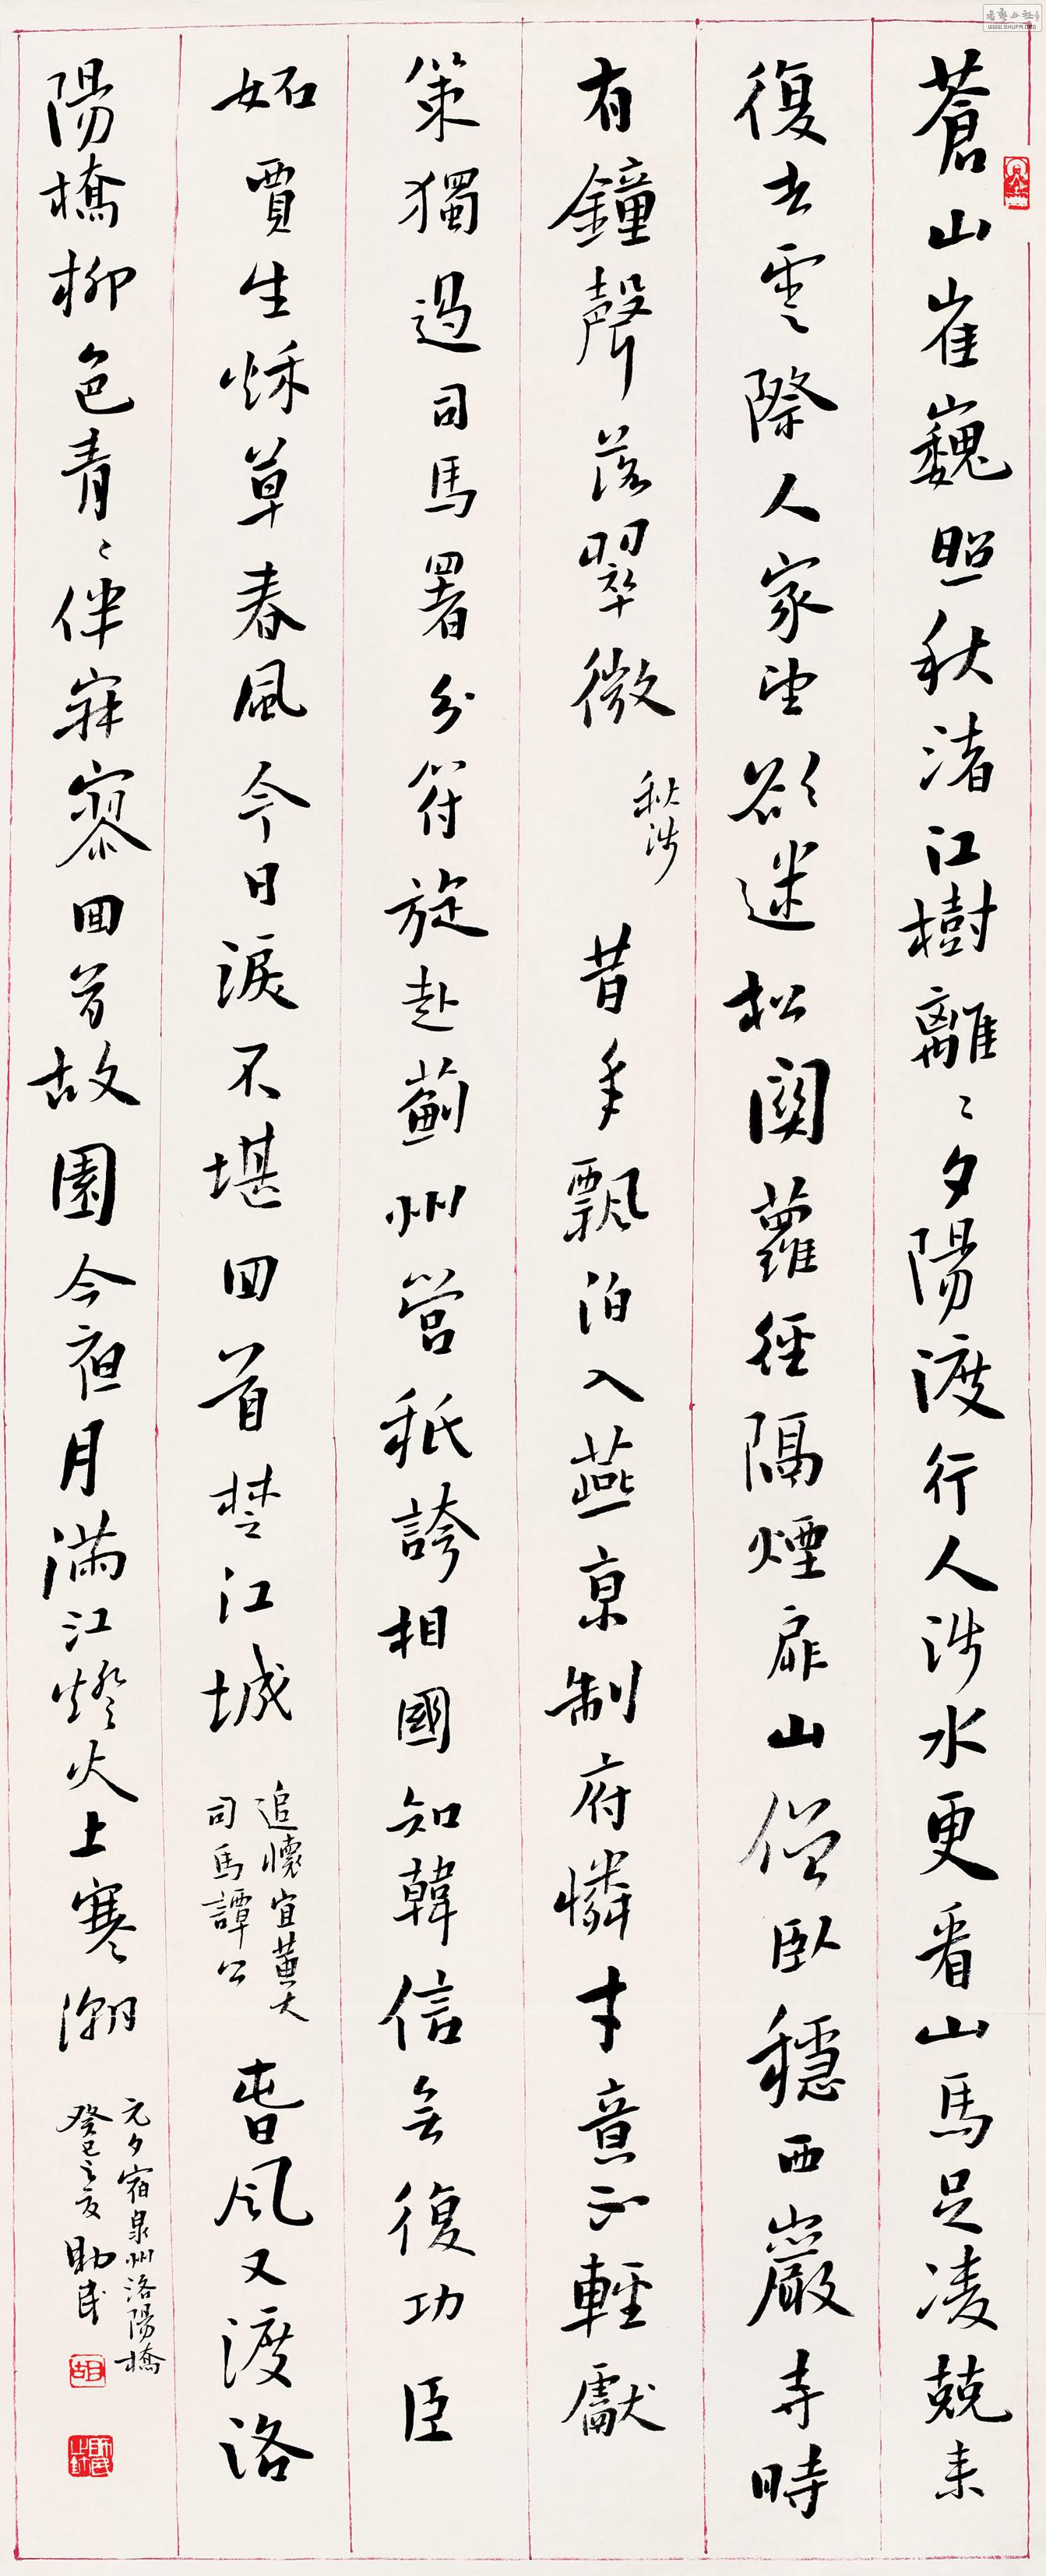 蒼山崔巍照秋渚江樹離〻夕陽渡行人涉水更看山馬足凌兢來
復去雲際人家望欲迷松關蘿徑隔煙扉山僧臥穩西巖寺時
有鐘聲落翠微
秋涉
昔年飄泊入燕京制府憐才意不輕獻
策獨過司馬署分符旋赴薊州營秖誇相國知韓信無復功臣
妬賈生烁草春風今日淚不堪回首楚江城
追懷宜黃大
司馬譚公
春風又渡洛
陽橋柳色青〻伴寂寥回首故園今夜月滿江燈火上寒潮
元夕宿泉州洛陽橋
癸巳之夏助民
WWW.SHUFA.ORG